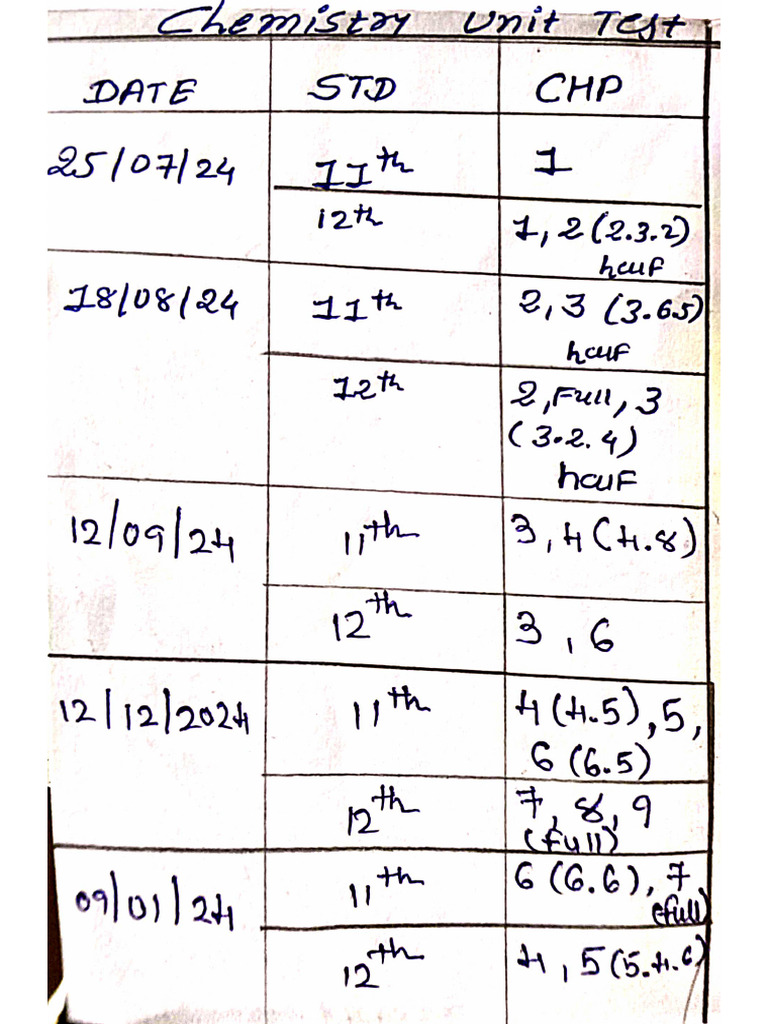 Chemistry Unit Test
DATE STD CHP
25/07/24 11th 1
12th 1, 2 (2.3.2)
half
18/08/24 11th 2, 3 (3.65)
half
12th 2, Full, 3
(3.2.4)
half
12/09/24 11th 3, 4 (4.8)
12th 3, 6
12/12/2024 11th 4 (4.5), 5,
6 (6.5)
12th 7, 8, 9
(full)
09/01/24 11th 6 (6.6), 7
(full)
12th 4, 5 (5.4.6)